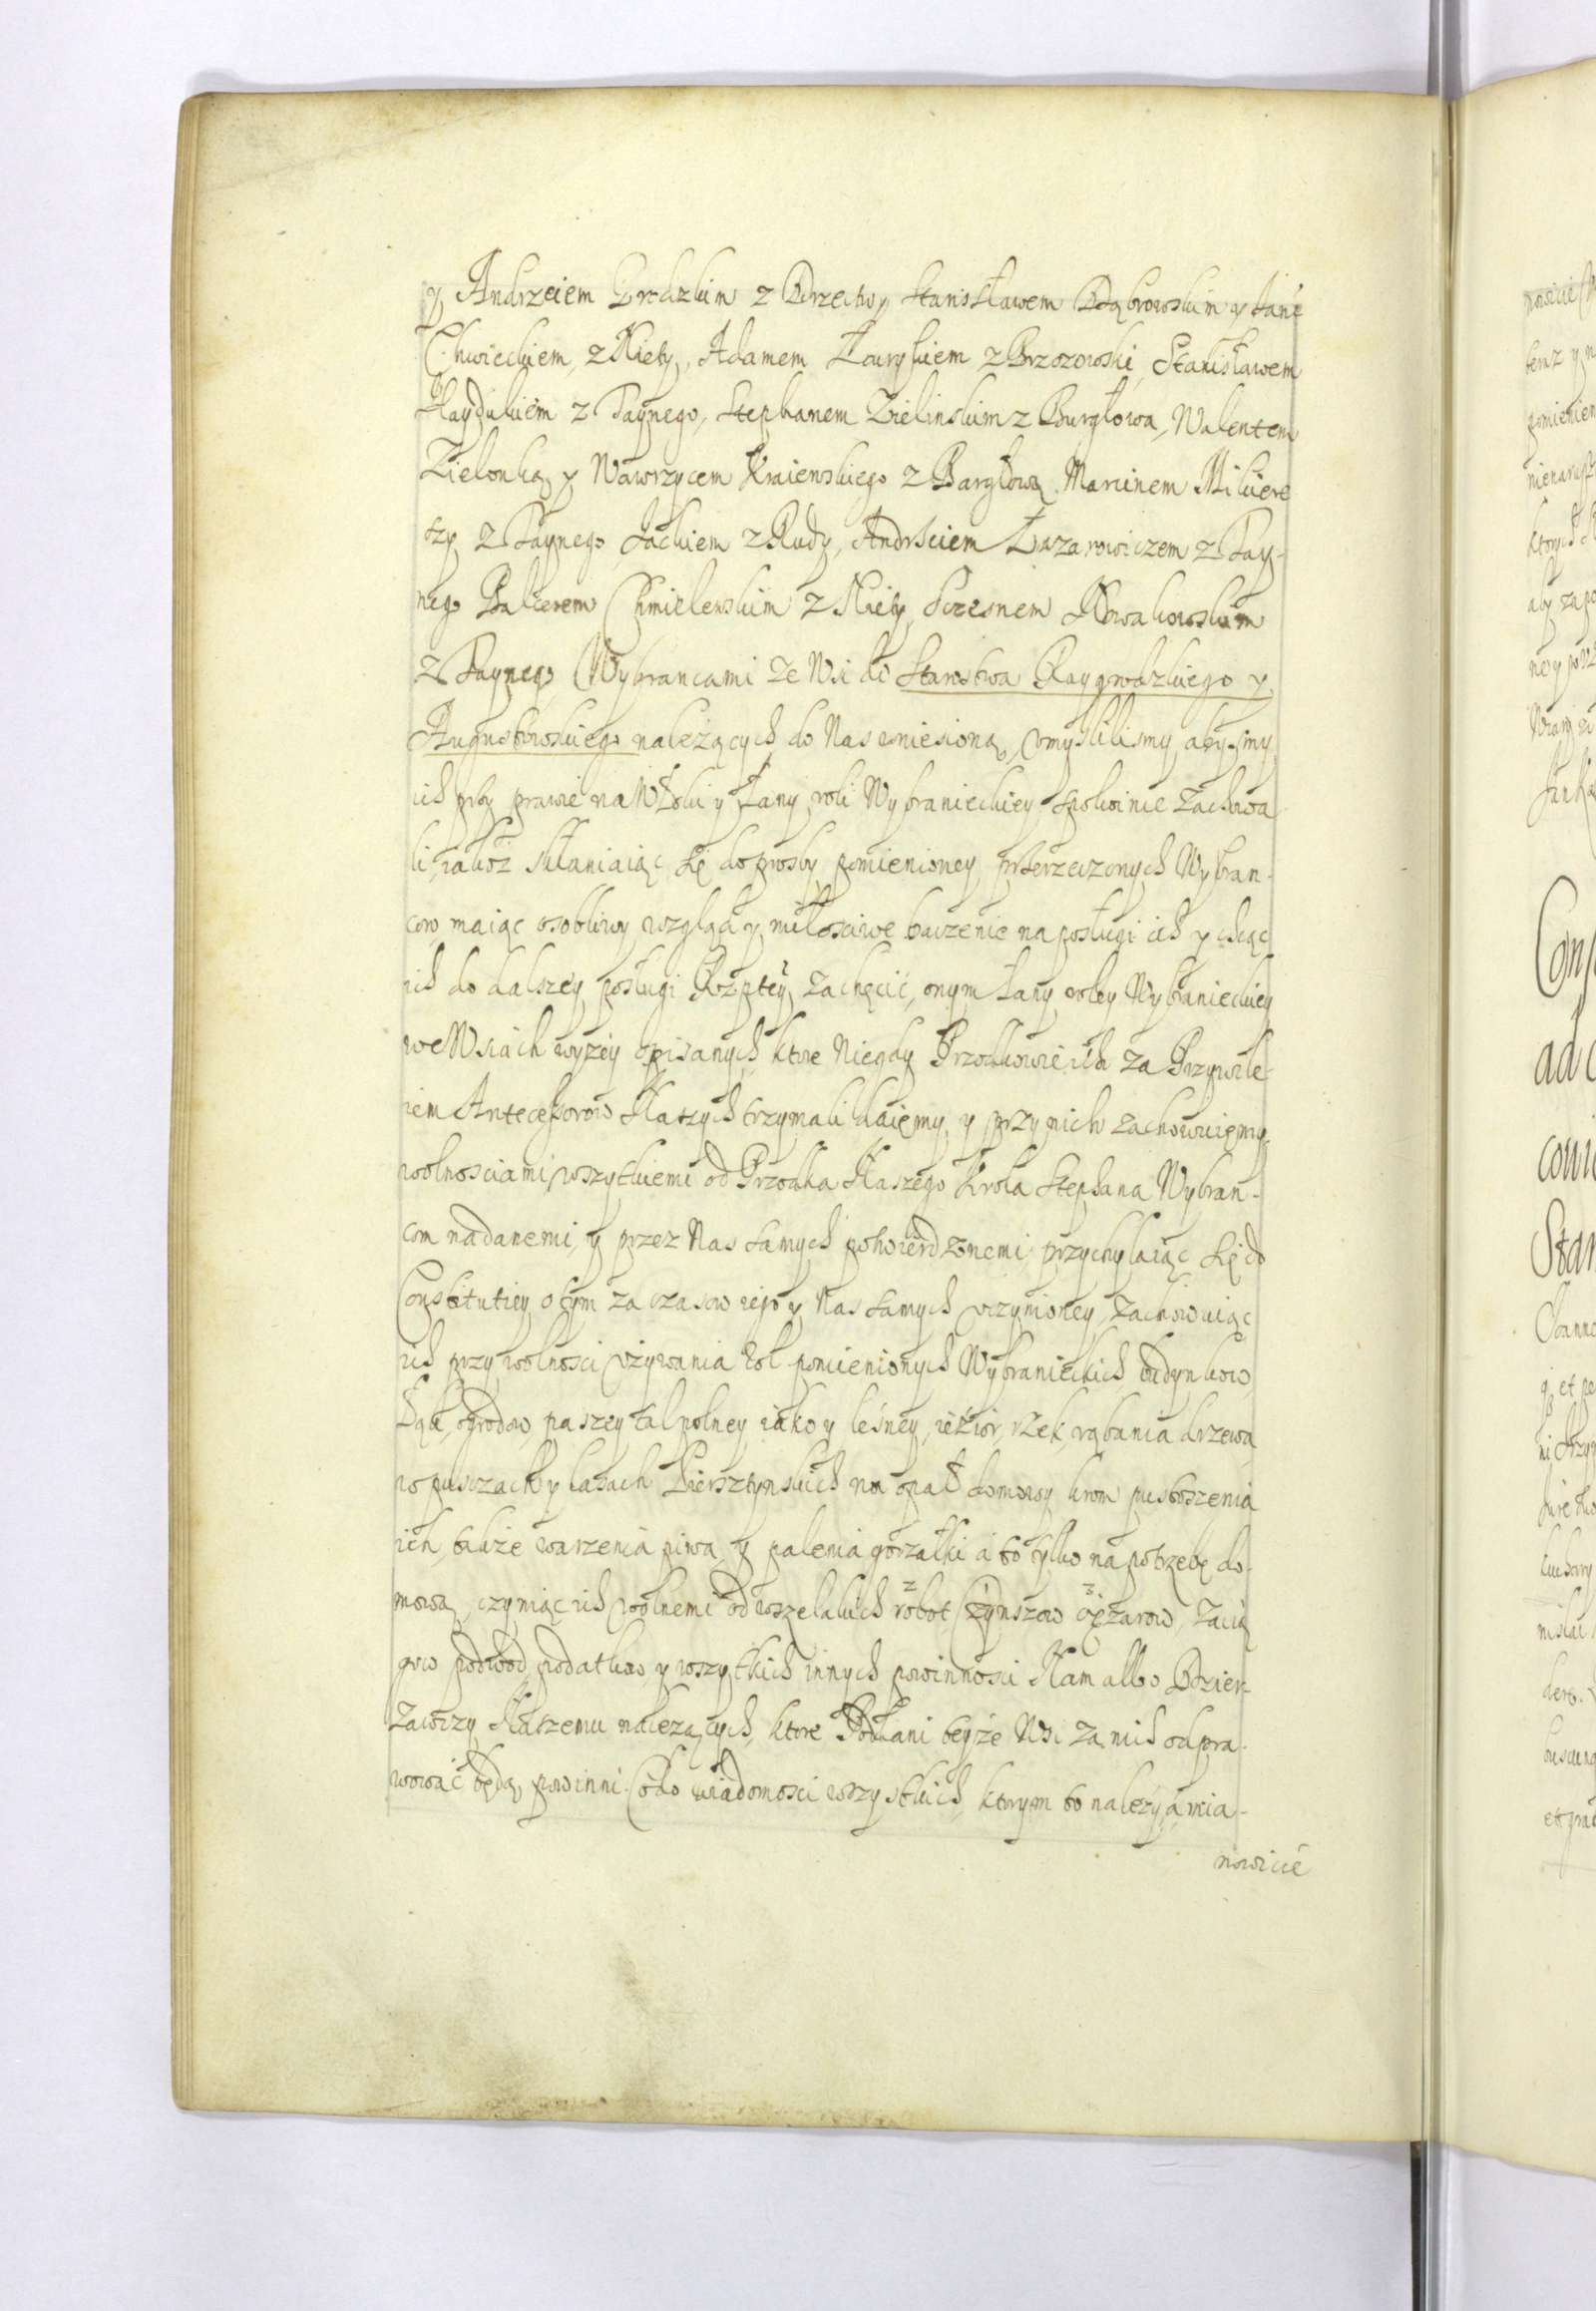 y Andrzeiem Grodzkim z Drzechy, Stanisławem Dąbrowskim y Janē
Chwieckiem, z Niely, Adamem Ławrykiem z Brzozowki, Stanisławem
Haydukiem z Taynego, Stephanem Zielinskim z Burgłowa, Walentem
Zielonką, y Wawrzycem Kraiewskiego z Bargłowa, Marcinem Milwere
z Taynego Jackiem z Rudy, Andrseiem Łazarowiczem z Tay-
nego Balcerem Chmielewskim z Niely, Sczesnem Nowakowskim
z Taynego Wybrancami ze Wsi do Starostwa Raygrodzkiego y
Augustowskiego należących, do Nas wniesioną, vmyslilismy, abysmy
ich przy prawie na Włoki y Łany roli Wybranieckiey spokoinie zachowa
li, iakoż skłaniaiąc się do prosby pomienioney przerzeczonych Wybran-
cow, maiąc osobliwy wzgląd y miłosciwe baczenie na posługi ich y chcąc
ich do dalszey posługi Rzptey zachęcić, onym Łany roley Wybranieckiey
we Wsiach wyżey opisanych, ktore Niegdy Przodkowie ich za Przywile-
iem Antecessorow Naszych trzymali daiemy, y przy nich zachowuiemy,
wolnosciami wszytkiemi od Przodka Naszego Krola Stephana Wybran-
com nadanemi, y przez Nas samych potwierdzonemi przychylaiąc się do
Constitutiey o tym za czasow iego y Nas samych vczynioney, zachowuiąc
ich przy wolnosci vżywania Rol pomienionych Wybranieckich, budynkow
Łąk, ogrodow, paszey tak polney iako y leśney, ieźior, rzek, rąbania drzewa
w pusczach y lasach Perstynskich na opał domowy krom pustoszenia
ich, także warzenia piwa, y palenia gorzałki á to tylko na potrzebę do-
mową, czyniąc ich wolnemi od wszelakich robot Czynszow ciężarow, zacią
gow podwod, podatkow y wszytkich innych powinnosci Nam albo Dzier-
żawczy Naszemu należących, ktore Poddani teyże Wsi za nich odpra-
wować będą powinni. Co do wiadomosci wszystkich, ktorym to należy, a mia-
nowicie